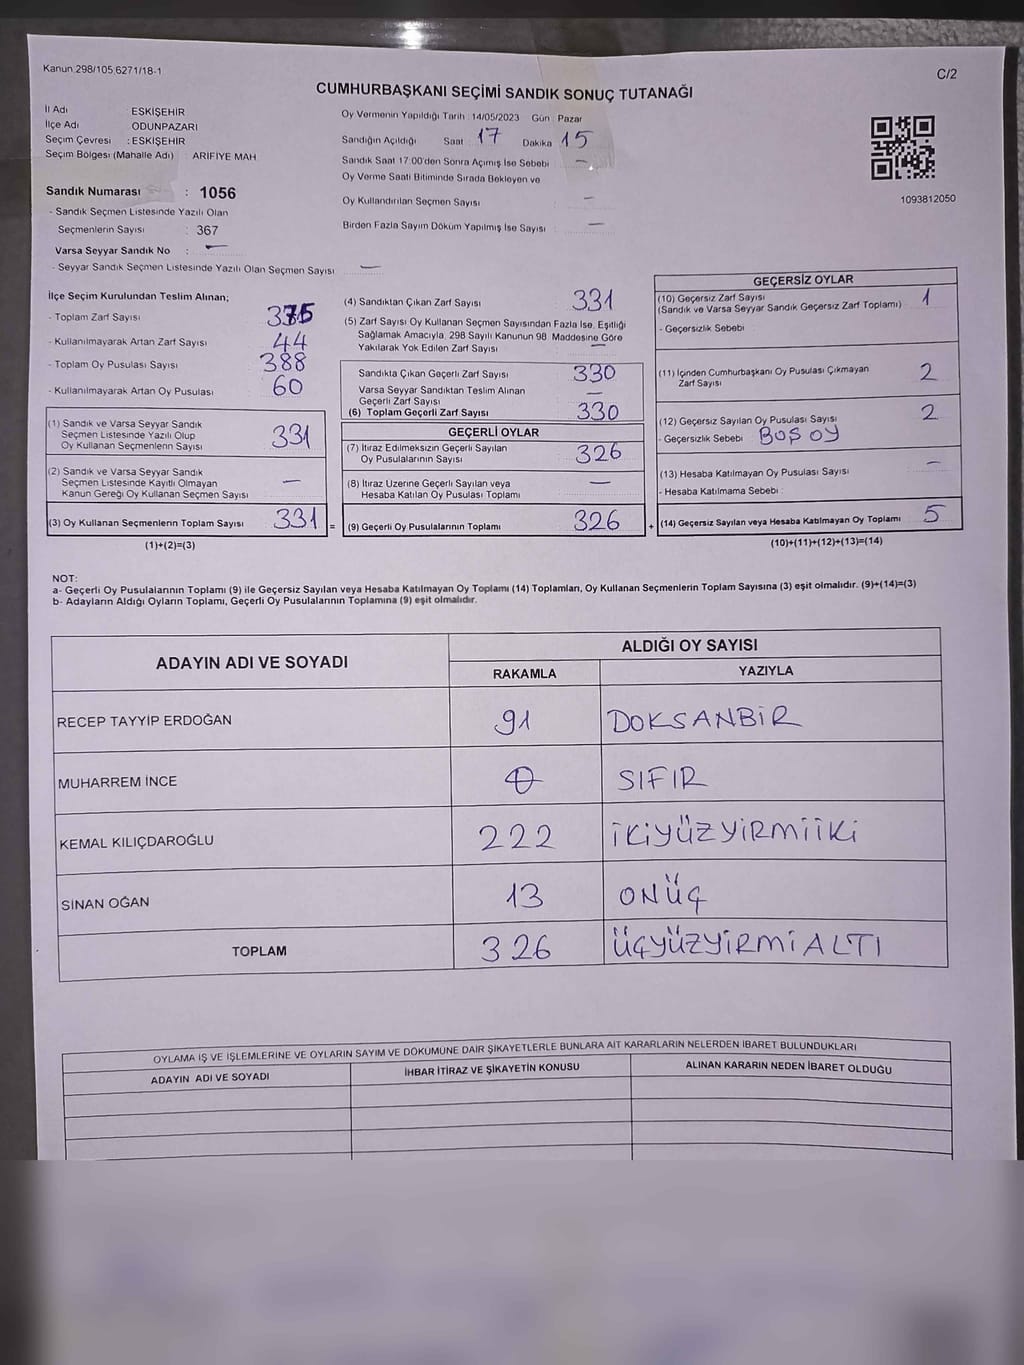 Kanun 298/105,6271/18-1
C/2
CUMHURBAŞKANI SEÇİMİ SANDIK SONUÇ TUTANAĞI
İl Adı ESKİŞEHİR
İlçe Adı ODUNPAZARI
Seçim Çevresi : ESKİŞEHİR
Seçim Bölgesi (Mahalle Adı) : ARİFİYE MAH
Sandık Numarası : 1056
- Sandık Seçmen Listesinde Yazılı Olan
Seçmenlerin Sayısı : 367
Varsa Seyyar Sandık No : —
- Seyyar Sandık Seçmen Listesinde Yazılı Olan Seçmen Sayısı —
Oy Vermenin Yapıldığı Tarih : 14/05/2023 Gün : Pazar
Sandığın Açıldığı Saat 17 Dakika 15
Sandık Saat 17:00'den Sonra Açılmış İse Sebebi —
Oy Verme Saati Bitiminde Sırada Bekleyen ve
Oy Kullandırılan Seçmen Sayısı —
Birden Fazla Sayım Döküm Yapılmış İse Sayısı —
1093812050
İlçe Seçim Kurulundan Teslim Alınan;
- Toplam Zarf Sayısı 375
- Kullanılmayarak Artan Zarf Sayısı 44
- Toplam Oy Pusulası Sayısı 388
- Kullanılmayarak Artan Oy Pusulası 60
(1) Sandık ve Varsa Seyyar Sandık
Seçmen Listesinde Yazılı Olup
Oy Kullanan Seçmenlerin Sayısı 331
(2) Sandık ve Varsa Seyyar Sandık
Seçmen Listesinde Kayıtlı Olmayan
Kanun Gereği Oy Kullanan Seçmen Sayısı —
(3) Oy Kullanan Seçmenlerin Toplam Sayısı 331 =
(1)+(2)=(3)
(4) Sandıktan Çıkan Zarf Sayısı 331
(5) Zarf Sayısı Oy Kullanan Seçmen Sayısından Fazla İse, Eşitliği
Sağlamak Amacıyla, 298 Sayılı Kanunun 98. Maddesine Göre
Yakılarak Yok Edilen Zarf Sayısı —
Sandıkta Çıkan Geçerli Zarf Sayısı 330
Varsa Seyyar Sandıktan Teslim Alınan
Geçerli Zarf Sayısı —
(6) Toplam Geçerli Zarf Sayısı 330
GEÇERLİ OYLAR
(7) İtiraz Edilmeksizin Geçerli Sayılan
Oy Pusulalarının Sayısı 326
(8) İtiraz Üzerine Geçerli Sayılan veya
Hesaba Katılan Oy Pusulası Toplamı —
(9) Geçerli Oy Pusulalarının Toplamı 326 +
GEÇERSİZ OYLAR
(10) Geçersiz Zarf Sayısı 1
(Sandık ve Varsa Seyyar Sandık Geçersiz Zarf Toplamı)
- Geçersizlik Sebebi
(11) İçinden Cumhurbaşkanı Oy Pusulası Çıkmayan
Zarf Sayısı 2
(12) Geçersiz Sayılan Oy Pusulası Sayısı 2
- Geçersizlik Sebebi BOŞ OY
(13) Hesaba Katılmayan Oy Pusulası Sayısı —
- Hesaba Katılmama Sebebi :
(14) Geçersiz Sayılan veya Hesaba Katılmayan Oy Toplamı 5
(10)+(11)+(12)+(13)=(14)
NOT:
a- Geçerli Oy Pusulalarının Toplamı (9) ile Geçersiz Sayılan veya Hesaba Katılmayan Oy Toplamı (14) Toplamları, Oy Kullanan Seçmenlerin Toplam Sayısına (3) eşit olmalıdır. (9)+(14)=(3)
b- Adayların Aldığı Oyların Toplamı, Geçerli Oy Pusulalarının Toplamına (9) eşit olmalıdır.
ADAYIN ADI VE SOYADI
ALDIĞI OY SAYISI
RAKAMLA YAZIYLA
RECEP TAYYİP ERDOĞAN 91 DOKSANBİR
MUHARREM İNCE 0 SIFIR
KEMAL KILIÇDAROĞLU 222 İKİYÜZYİRMİİKİ
SİNAN OĞAN 13 ONÜÇ
TOPLAM 326 ÜÇYÜZYİRMİALTI
OYLAMA İŞ VE İŞLEMLERİNE VE OYLARIN SAYIM VE DÖKÜMÜNE DAİR ŞİKAYETLERLE BUNLARA AİT KARARLARIN NELERDEN İBARET BULUNDUKLARI
ADAYIN ADI VE SOYADI İHBAR İTİRAZ VE ŞİKAYETİN KONUSU ALINAN KARARIN NEDEN İBARET OLDUĞU